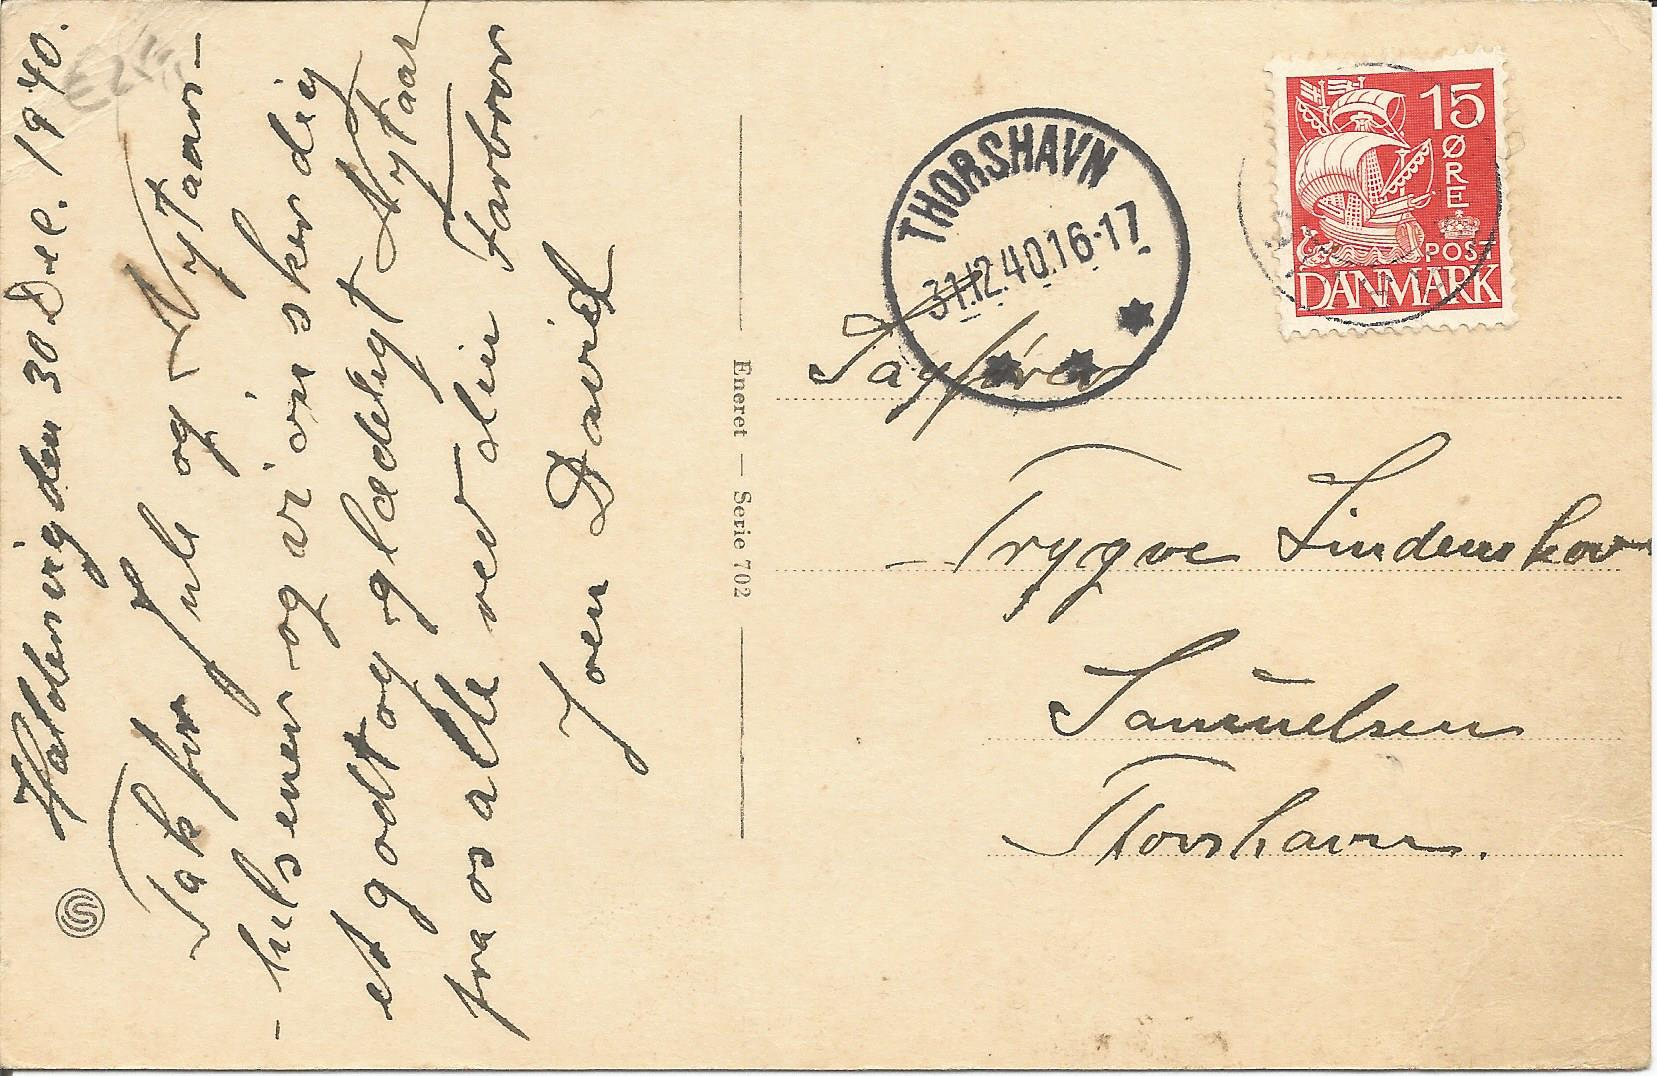 Haldersvig den 30 Dec. 1940.
Tak for Jule og Nytaars-
-hilsenen og vi önsker dig
et godt og glædeligt Nytaar
fra os alle ved din Farbror
Joen David
Eneret — Serie 702
THORSHAVN
31.12.40.16-17
15
ØRE
POST
DANMARK
Sagförer
Trygve Lindenskov
Samuelsen
Thorshavn.